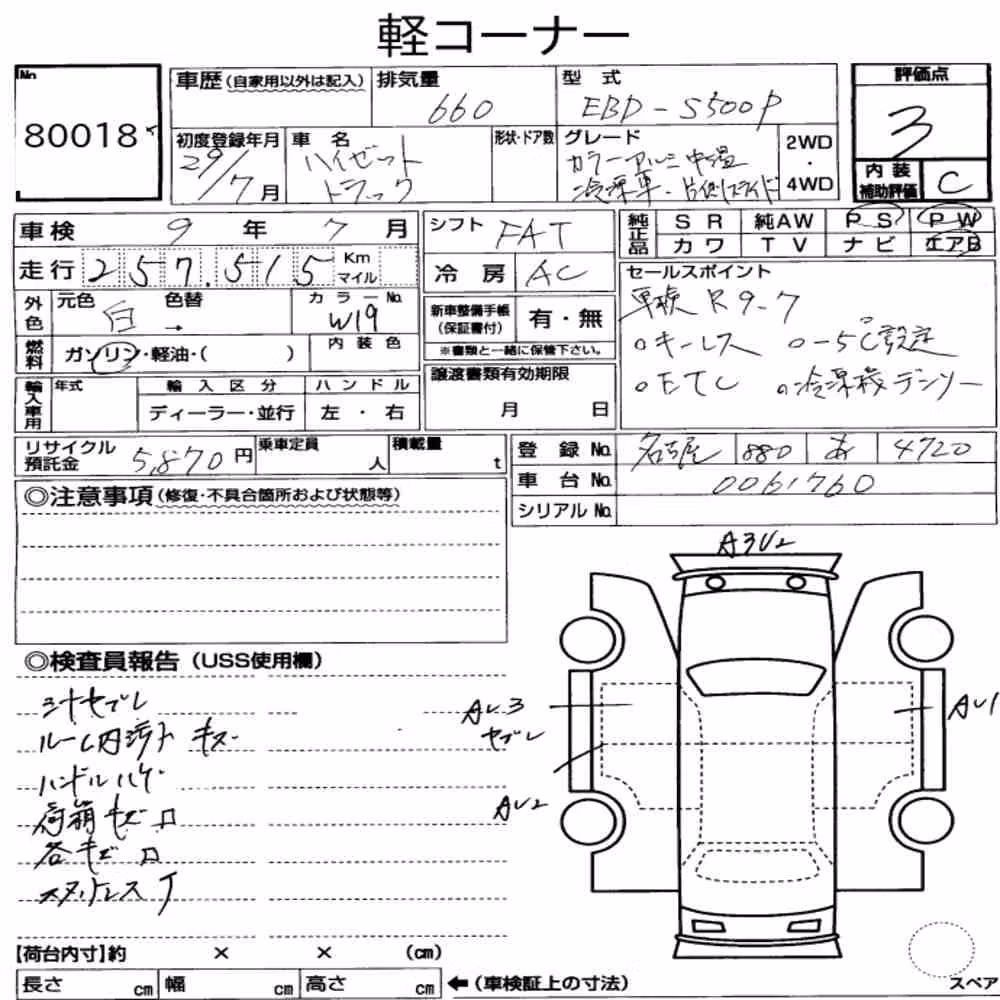 軽コーナー
No.
80018
車歴(自家用以外は記入)
排気量
660
型式
EBD-S500P
評価点
3
初度登録年月
29/7月
車名
ハイゼット
トラック
形状・ドア数
グレード
カラーアルミ中温
冷凍車・片側スライド
2WD
・
4WD
内装
補助評価
C
車検 9年 7月
シフト FAT
純正品
SR 純AW PS PW
カワ TV ナビ エアB
走行 257,515 Km
マイル
冷房 AC
セールスポイント
車検 R9-7
○キーレス ○-5℃設定
○ETC ○冷凍機デンソー
外色
元色 白 → 色替
カラーNo.
W19
新車整備手帳
(保証書付) 有・無
※書類と一緒に保管下さい。
燃料
ガソリン・軽油・( )
内装色
譲渡書類有効期限
月 日
輸入車用
年式
輸入区分
ハンドル
ディーラー・並行
左・右
リサイクル
預託金 5,870円
乗車定員
人
積載量
t
登録No. 名古屋 880 あ 4720
車台No. 0061760
シリアルNo.
◎注意事項(修復・不具合箇所および状態等)
◎検査員報告(USS使用欄)
シートヤブレ
ルーム内汚れ キズ
ハンドルハゲ
荷箱キズ
各キズ
ステンレス
A3U2
AU3
ヤブレ
AU2
AU1
【荷台内寸】約 × × (cm)
長さ cm 幅 cm 高さ cm ←(車検証上の寸法)
スペア